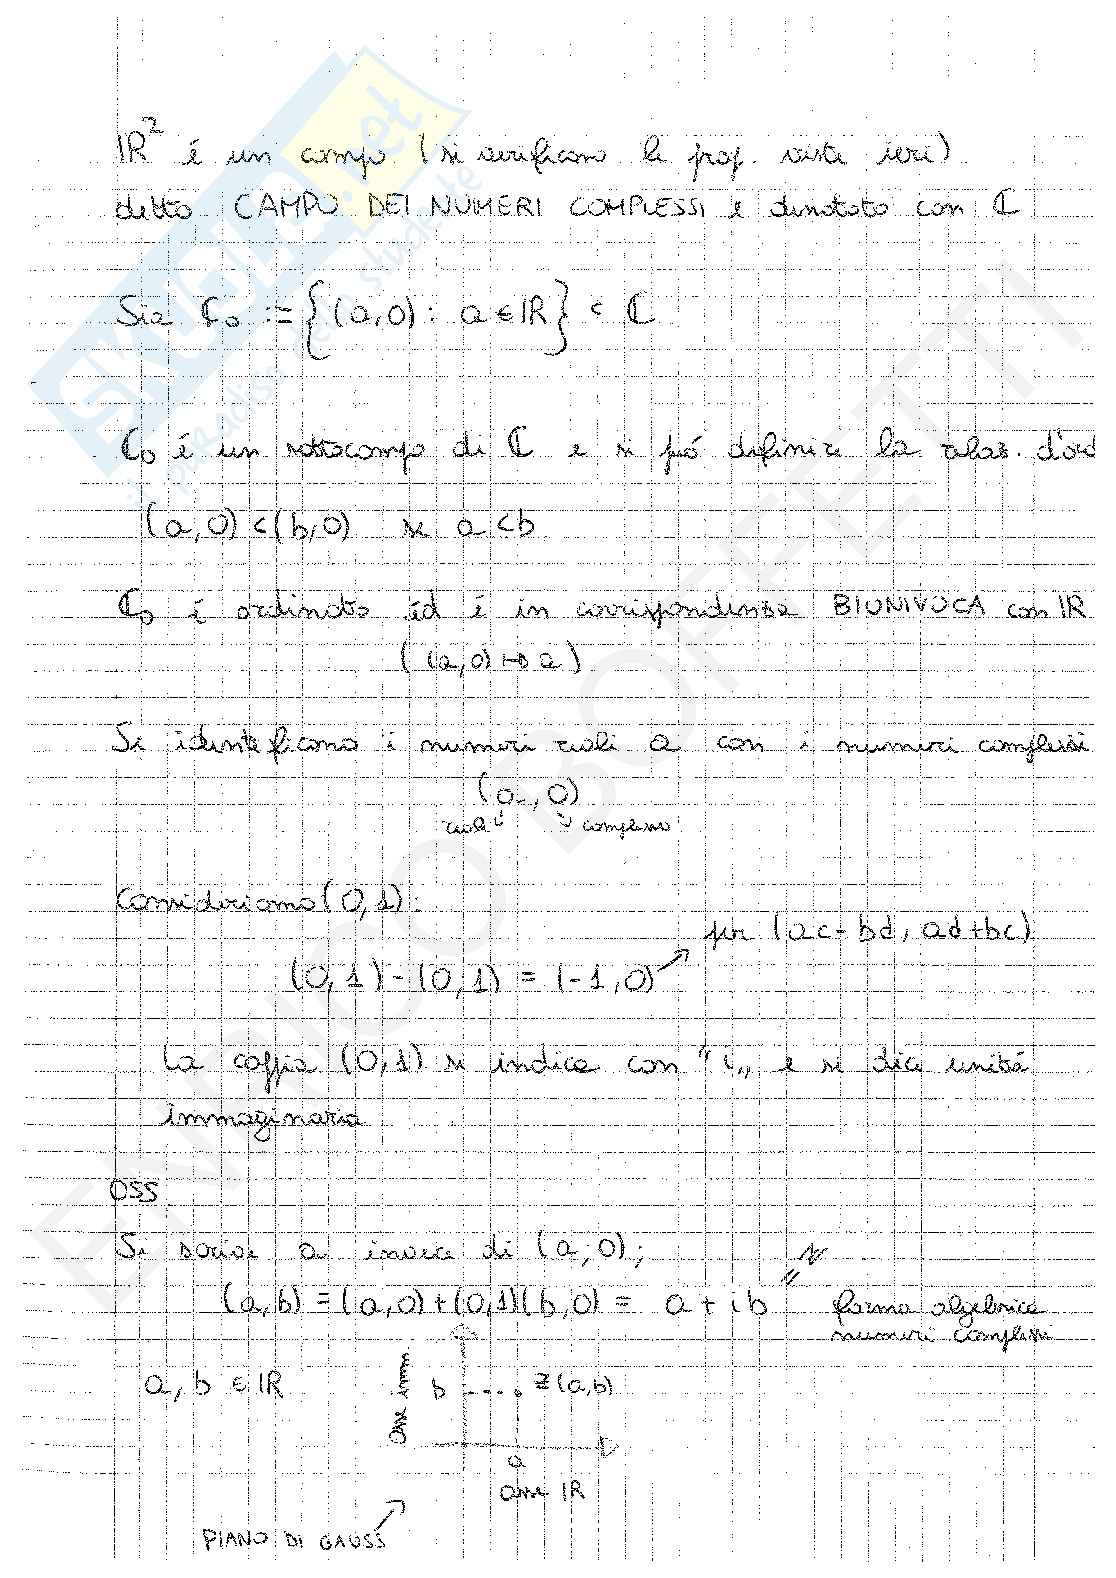 IR² é un campo (si verificano le prop. viste ieri)
detto CAMPO DEI NUMERI COMPLESSI e denotato con ℂ
Sia ℂ₀ := {(a,0): a ∈ IR} ⊂ ℂ
ℂ₀ é un sottocampo di ℂ e si puó definire la relaz. d'ord
(a,0) < (b,0) se a < b
ℂ₀ é ordinato ed é in corrispondenza BIUNIVOCA con IR
((a,0) ↦ a)
Si identificano i numeri reali a con i numeri complessi
(a,0)
reale complesso
Consideriamo (0,1):
per (ac-bd, ad+bc)
(0,1)-(0,1) = (-1,0)
La coppia (0,1) si indica con "i„ e si dice unitá
immaginaria
OSS
Si scrive a invece di (a,0);
(a,b) = (a,0)+(0,1)(b,0) = a+ib
forma algebrica
numeri complessi
a, b ∈ IR
asse imm
b
z(a,b)
a
asse IR
PIANO DI GAUSS
SKUOLA.net
il paradiso dello studente
ENRICO BOFFETTI